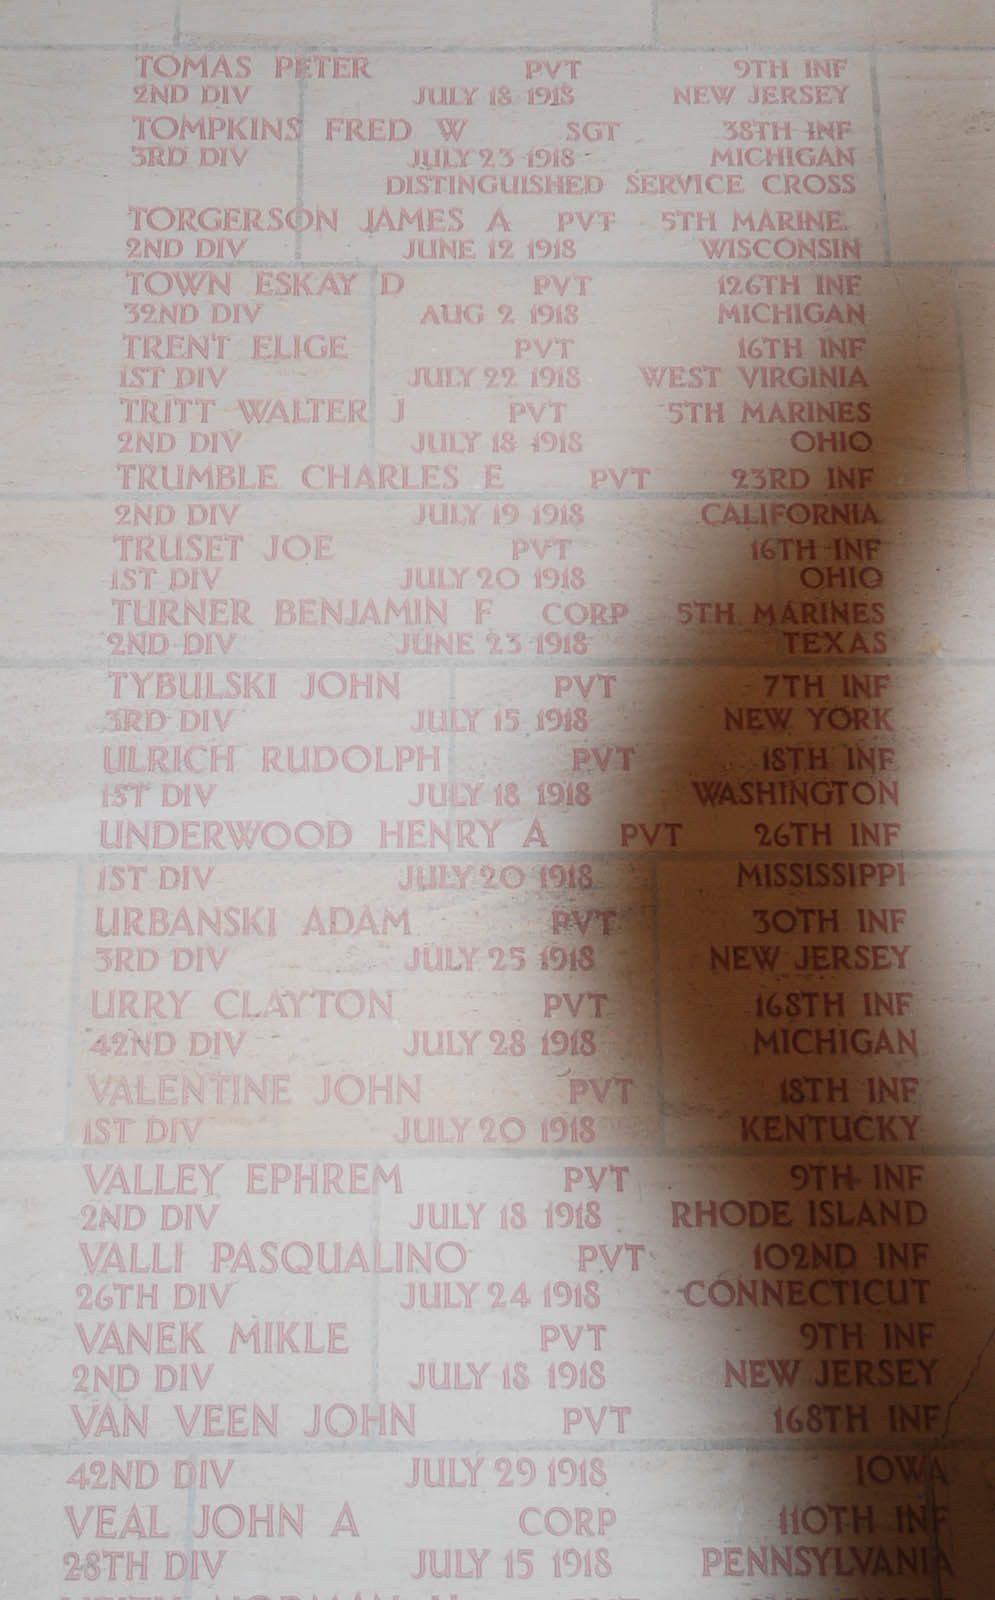 TOMAS PETER PVT 9TH INF
2ND DIV JULY 18 1918 NEW JERSEY
TOMPKINS FRED W SGT 38TH INF
3RD DIV JULY 23 1918 MICHIGAN
DISTINGUISHED SERVICE CROSS
TORGERSON JAMES A PVT 5TH MARINE
2ND DIV JUNE 12 1918 WISCONSIN
TOWN ESKAY D PVT 126TH INF
32ND DIV AUG 2 1918 MICHIGAN
TRENT ELIGE PVT 16TH INF
1ST DIV JULY 22 1918 WEST VIRGINIA
TRITT WALTER J PVT 5TH MARINES
2ND DIV JULY 18 1918 OHIO
TRUMBLE CHARLES E PVT 23RD INF
2ND DIV JULY 19 1918 CALIFORNIA
TRUSET JOE PVT 16TH INF
1ST DIV JULY 20 1918 OHIO
TURNER BENJAMIN F CORP 5TH MARINES
2ND DIV JUNE 23 1918 TEXAS
TYBULSKI JOHN PVT 7TH INF
3RD DIV JULY 15 1918 NEW YORK
ULRICH RUDOLPH PVT 18TH INF
1ST DIV JULY 18 1918 WASHINGTON
UNDERWOOD HENRY A PVT 26TH INF
1ST DIV JULY 20 1918 MISSISSIPPI
URBANSKI ADAM PVT 30TH INF
3RD DIV JULY 25 1918 NEW JERSEY
URRY CLAYTON PVT 168TH INF
42ND DIV JULY 28 1918 MICHIGAN
VALENTINE JOHN PVT 18TH INF
1ST DIV JULY 20 1918 KENTUCKY
VALLEY EPHREM PVT 9TH INF
2ND DIV JULY 18 1918 RHODE ISLAND
VALLI PASQUALINO PVT 102ND INF
26TH DIV JULY 24 1918 CONNECTICUT
VANEK MIKLE PVT 9TH INF
2ND DIV JULY 18 1918 NEW JERSEY
VAN VEEN JOHN PVT 168TH INF
42ND DIV JULY 29 1918 IOWA
VEAL JOHN A CORP 110TH INF
28TH DIV JULY 15 1918 PENNSYLVANIA